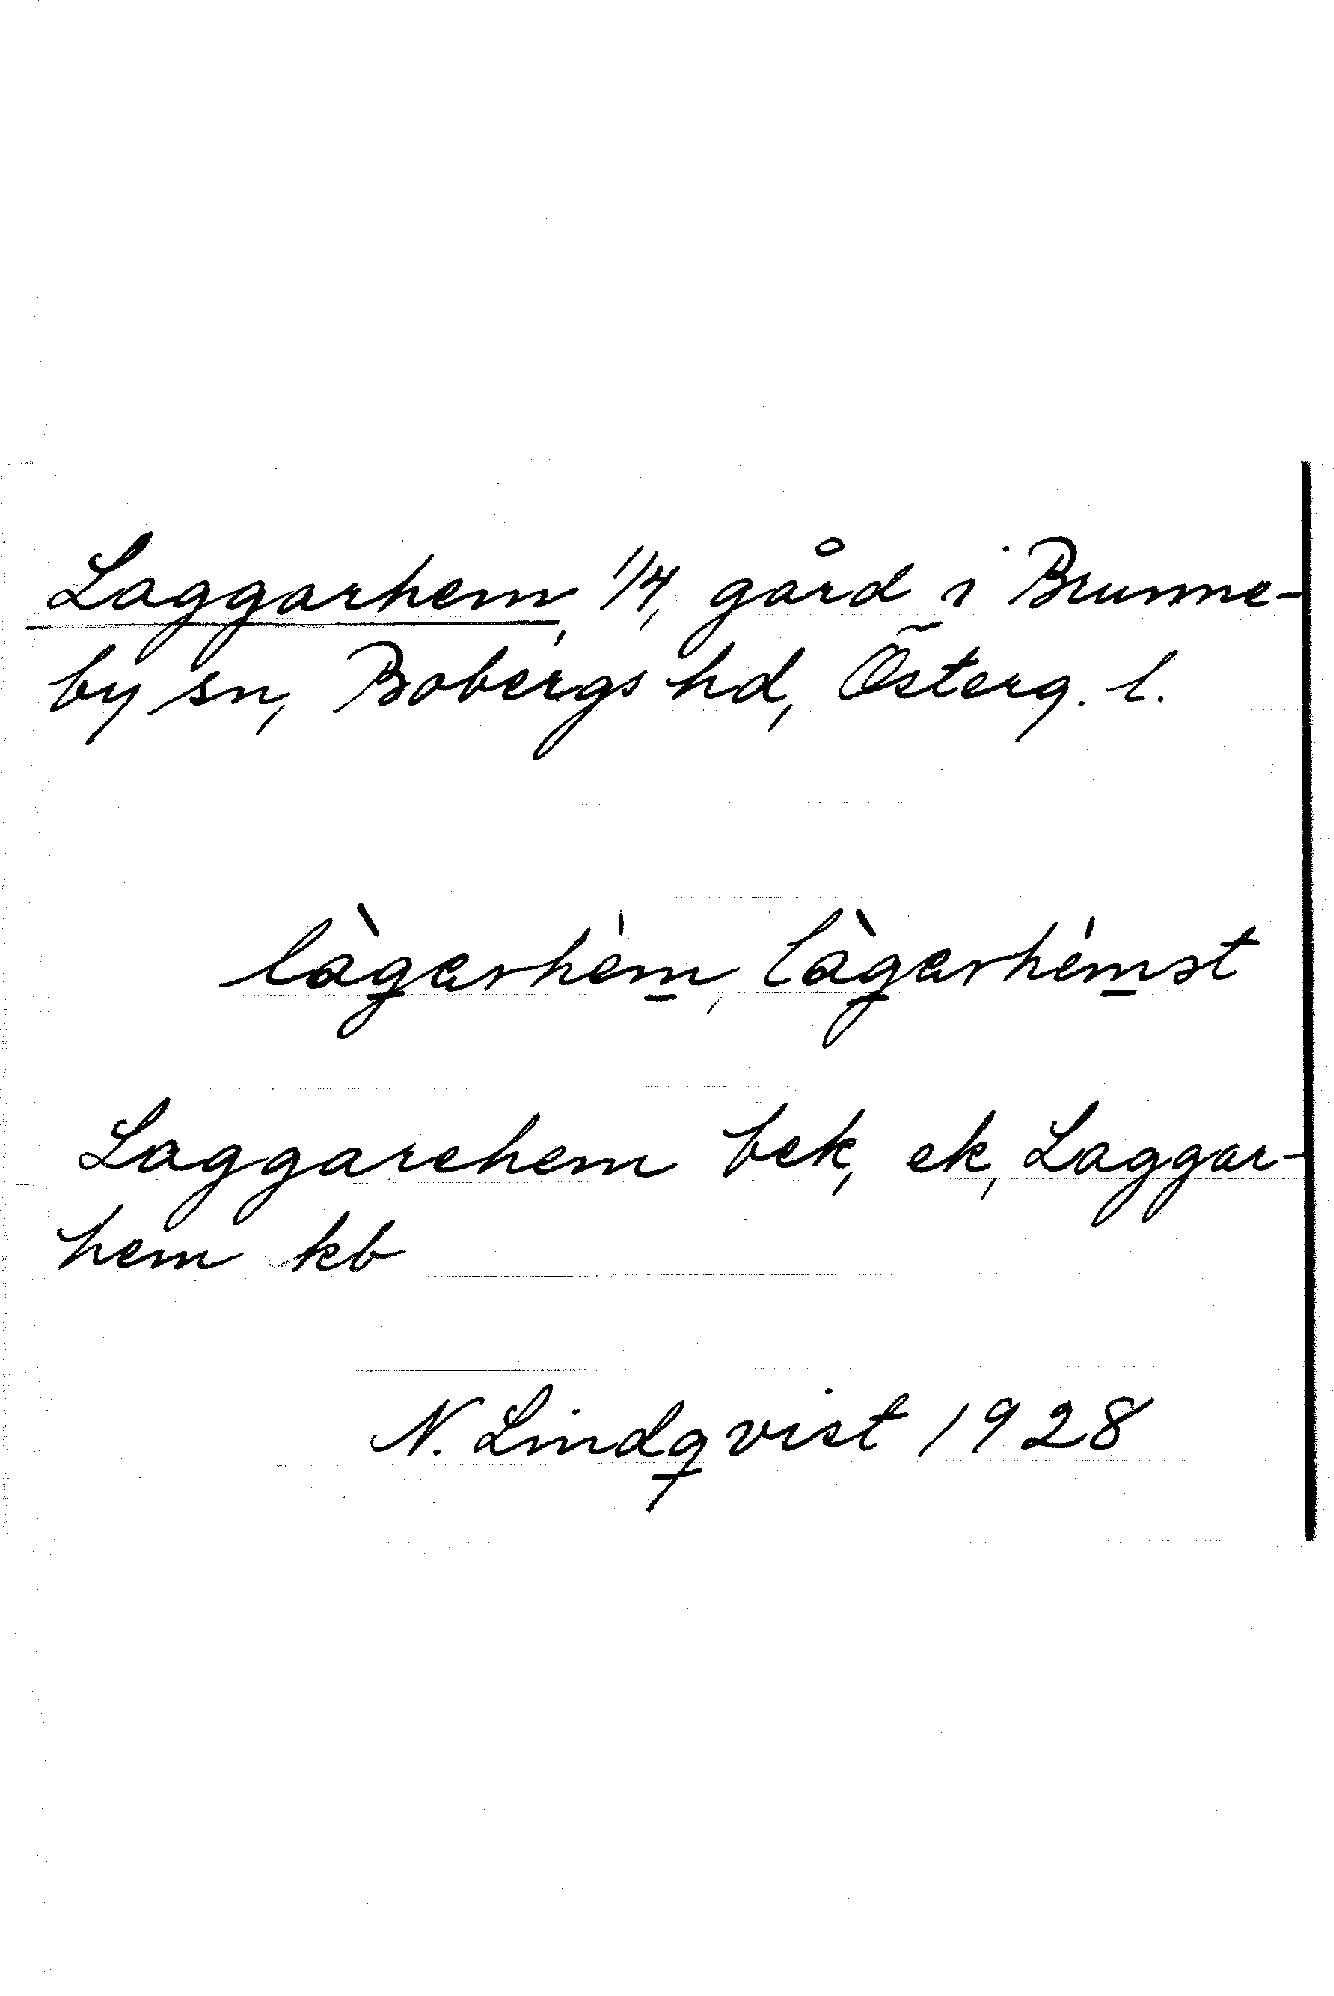 Laggarhem, 1/4, gård i Brunne-
by sn, Bobergs hd, Österg. l.
làgarhèm, làgarhémst
Laggarehem bek, ek, Laggar-
hem kb
N. Lindqvist 1928